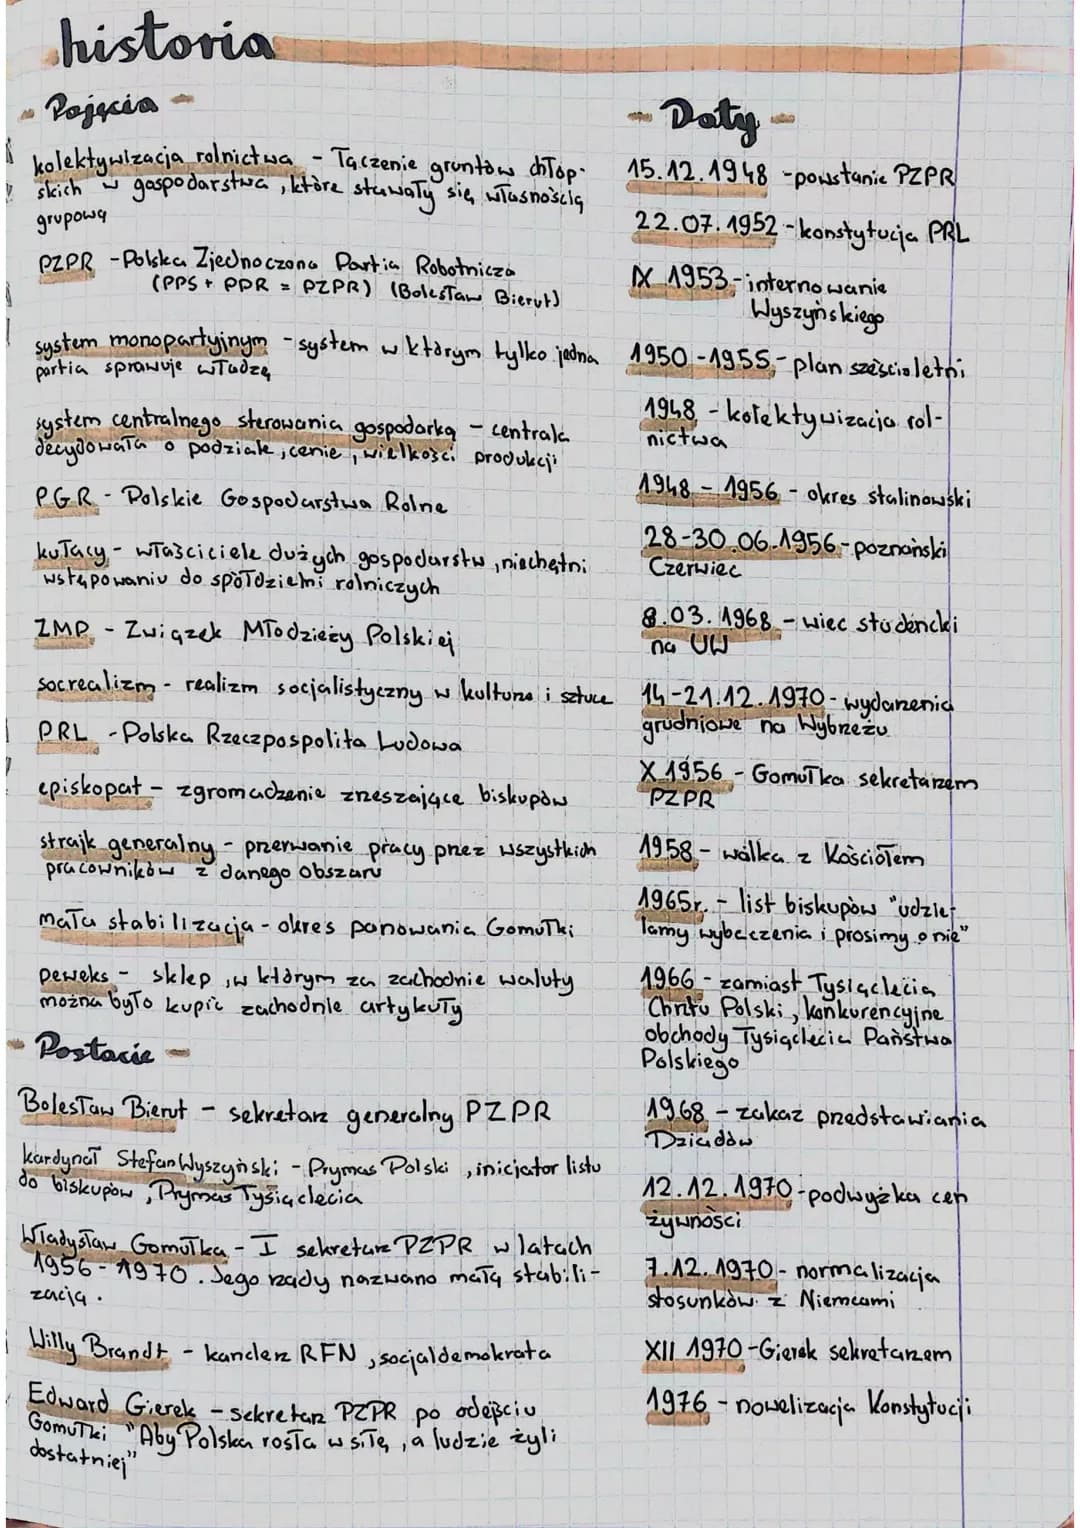 historia
- Pojęcia -
kolektywizacja rolnictwa - łączenie gruntów chłop-
skich w gospodarstwa, które stawały się własnością
grupową
PZPR - Polska Zjednoczona Partia Robotnicza
(PPS + PPR = PZPR) (Bolesław Bierut)
system monopartyjnym - system w którym tylko jedna
partia sprawuje władzę
system centralnego sterowania gospodarką - centrala
decydowała o podziale, cenie, wielkości produkcji
PGR - Polskie Gospodarstwa Rolne
kułacy - właściciele dużych gospodarstw, niechętni
wstępowaniu do spółdzielni rolniczych
ZMP - Związek Młodzieży Polskiej
socrealizm - realizm socjalistyczny w kulturze i sztuce
PRL - Polska Rzeczpospolita Ludowa
episkopat - zgromadzenie zrzeszające biskupów
strajk generalny - przerwanie pracy przez wszystkich
pracowników z danego obszaru
mała stabilizacja - okres panowania Gomułki
peweks - sklep, w którym za zachodnie waluty
można było kupić zachodnie artykuły
- Postacie -
Bolesław Bierut - sekretarz generalny PZPR
kardynał Stefan Wyszyński - Prymas Polski, inicjator listu
do biskupów, Prymas Tysiąclecia
Władysław Gomułka - I sekretarz PZPR w latach
1956 - 1970. Jego rządy nazwano małą stabili-
zacją.
Willy Brandt - kanclerz RFN, socjaldemokrata
Edward Gierek - sekretarz PZPR po odejściu
Gomułki "Aby Polska rosła w siłę, a ludzie żyli
dostatniej"
- Daty -
15.12.1948 - powstanie PZPR
22.07.1952 - konstytucja PRL
IX 1953 - internowanie
Wyszyńskiego
1950 - 1955 - plan sześcioletni
1948 - kolektywizacja rol-
nictwa
1948 - 1956 - okres stalinowski
28-30.06.1956 - poznański
Czerwiec
8.03.1968 - wiec studencki
na UW
14-21.12.1970 - wydarzenia
grudniowe na Wybrzeżu
X 1956 - Gomułka sekretarzem
PZPR
1958 - walka z Kościołem
1965r. - list biskupów "udzie-
lamy wybaczenia i prosimy o nie"
1966 - zamiast Tysiąclecia
Chrztu Polski, konkurencyjne
obchody Tysiąclecia Państwa
Polskiego
1968 - zakaz przedstawiania
Dziadów
12.12.1970 - podwyżka cen
żywności
7.12.1970 - normalizacja
stosunków z Niemcami
XII 1970 - Gierek sekretarzem
1976 - nowelizacja Konstytucji